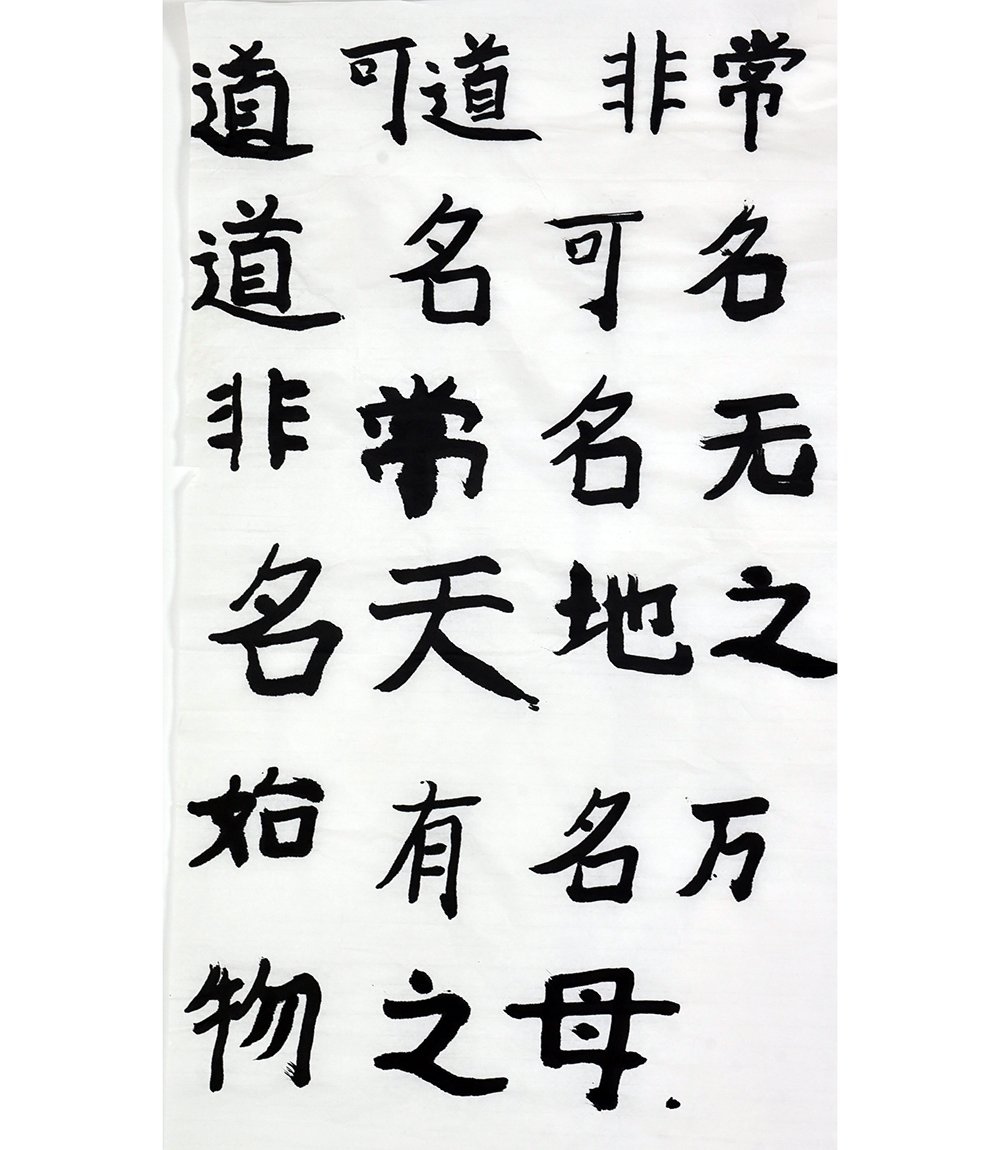 道可道非常
道名可名
非常名无
名天地之
始有名万
物之母.